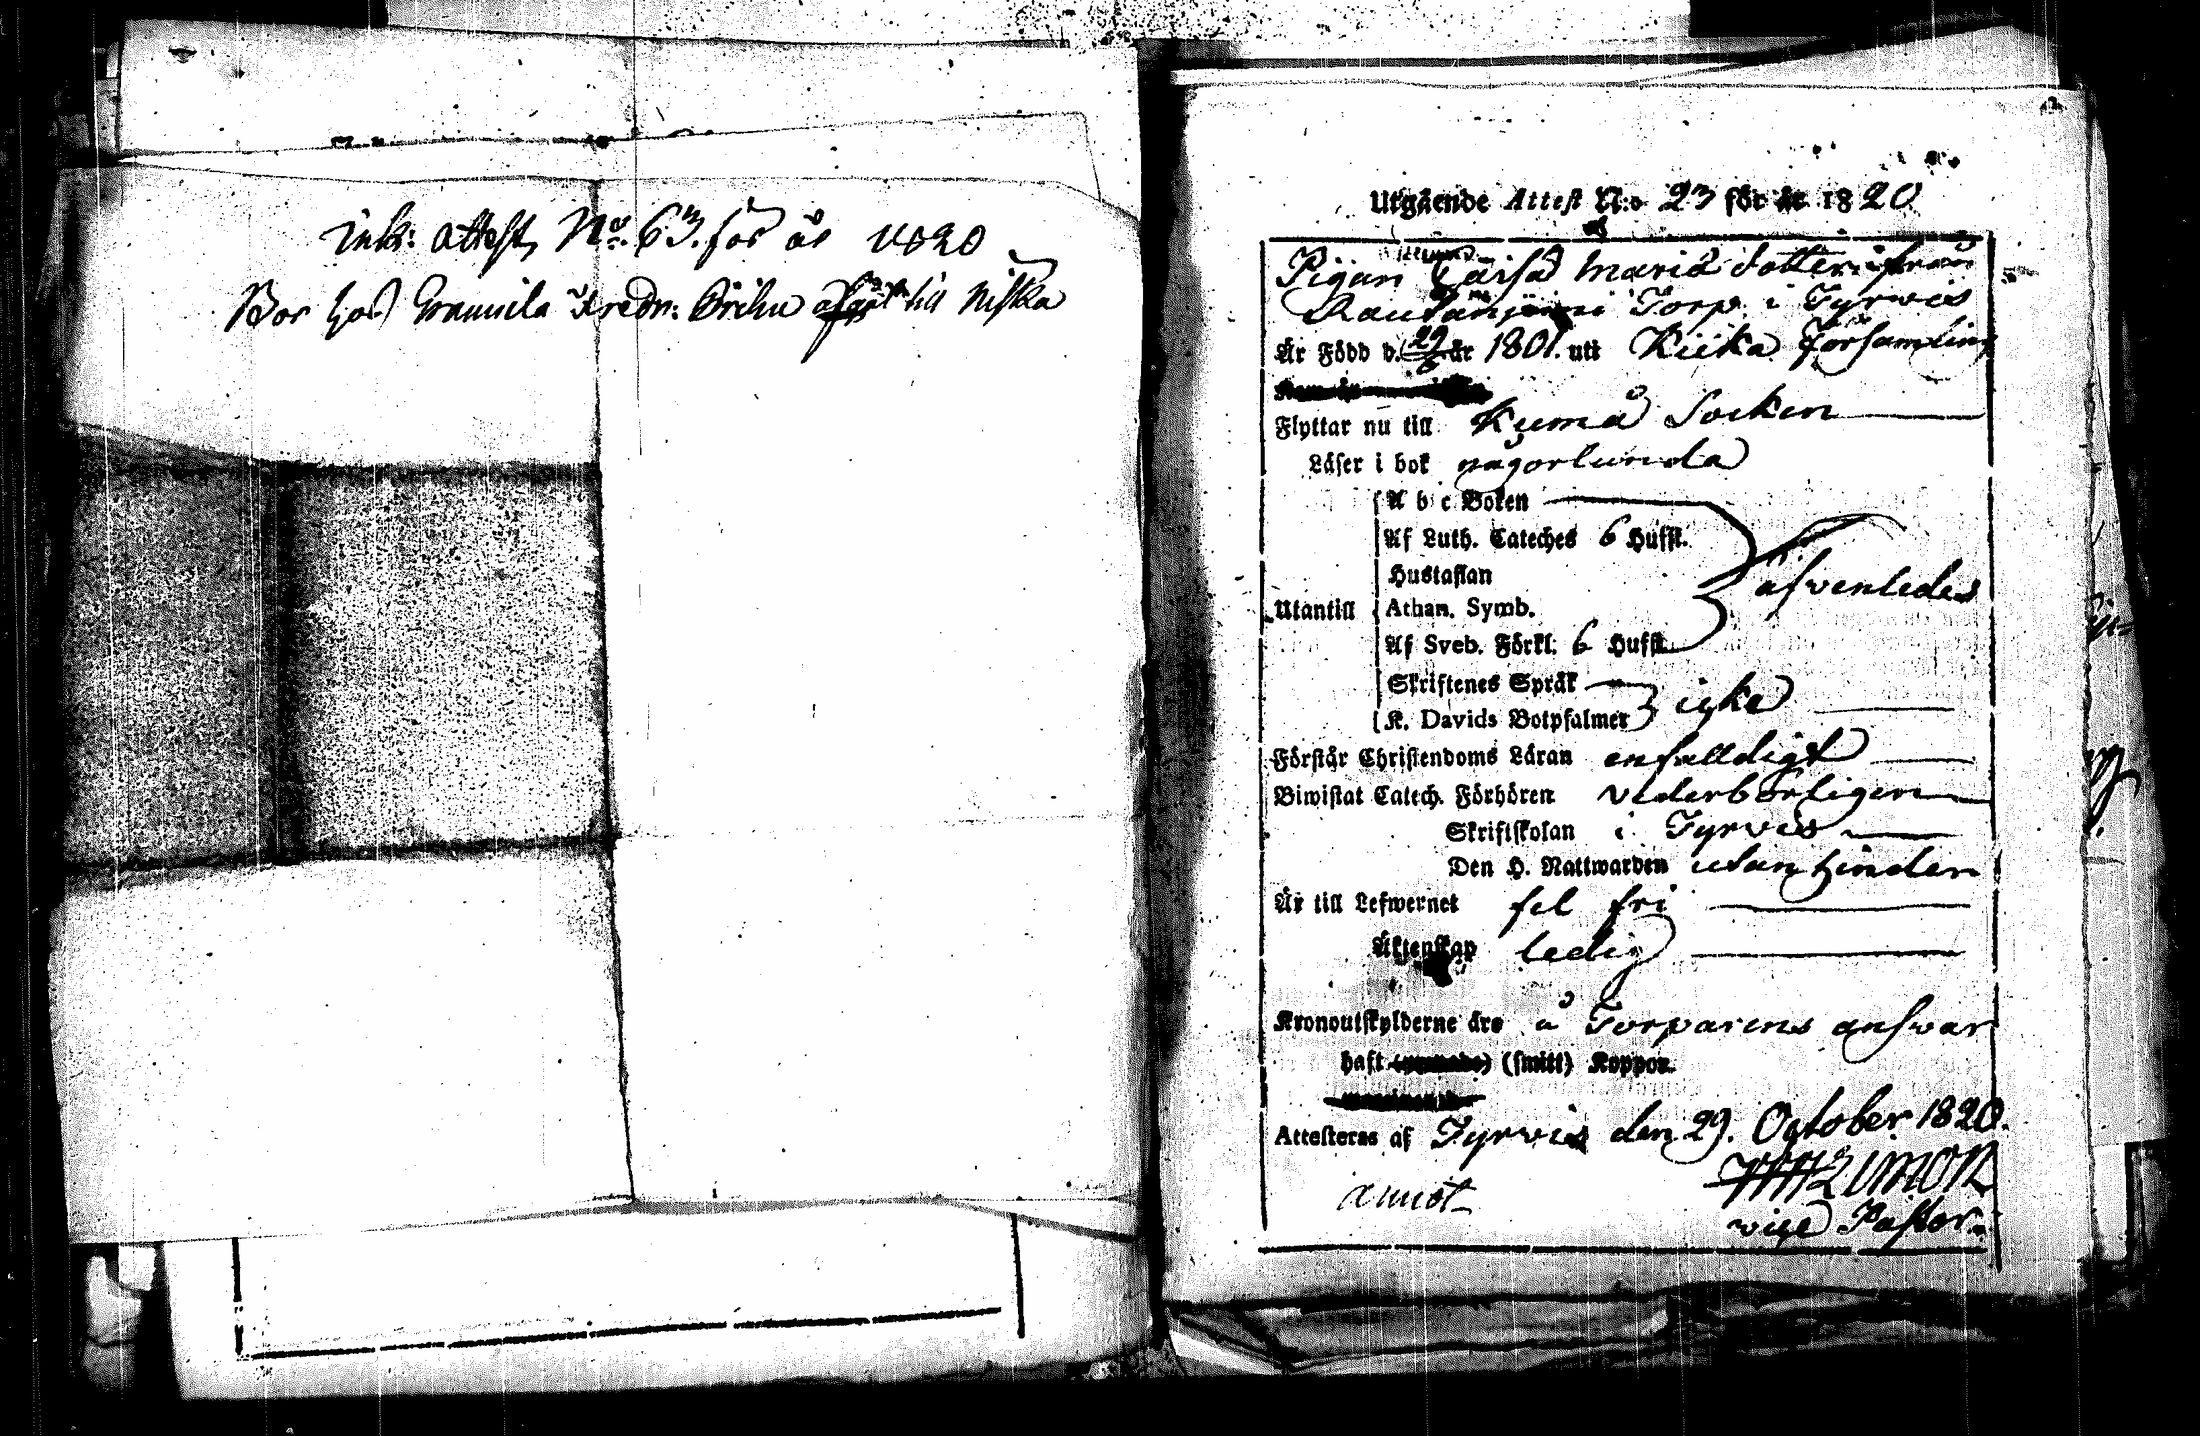 Ink: attest, No: 63. för år 1820
Bor hos till Niska
Utgående Attest N:o 23 för år 1820
Pigan Caisa Maria dotter ifrån
Rautanjemi Torp i Tyrvis
Är Född d. 29/6 år 1801. uti Kiika Församling
Flyttar nu till Kumå Socken
Läser i bok någorlunda
A b c Boken
Af Luth. Cateches 6 Hufst.
Hustaflan
äfvenledes
Utantill Athan. Symb.
Af Sveb. Förkl. 6 Hufst.
Skriftenes Språk
icke
K. Davids Botpsalmer
Förstår Christendoms Läran enfalldigt
Biwistat Catech. Förhören vederbörligen
Skriftskolan i Tyrvis
Den H. Nattwarden utan hinder
Är till Lefwernet fel fri
Äktenskap ledig
Kronoutskylderne äro å Torparens ansvar
haft (smitt) Koppor.
Attesteras af Tyrvis den 29. October 1820.
vice Pastor.